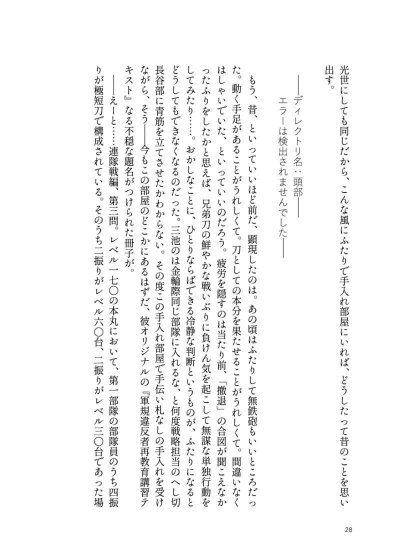 光世にしても同じだから、こんな風にふたりで手入れ部屋にいれば、どうしたって昔のことを思い
出す。
――ディレクトリ名：頭部――
エラーは検出されませんでした――
もう、昔、といっていいほど前だ、顕現したのは。あの頃はふたりして無鉄砲もいいところだっ
た。動く手足があることがうれしくて。刀としての本分を果たせることがうれしくて。間違いなく
はしゃいでいた、といっていいのだろう。疲労を隠すのは当たり前、「撤退」の合図が聞こえなか
ったふりをしたかと思えば、兄弟刀の鮮やかな戦いぶりに負けん気を起こして無謀な単独行動を
してみたり……。おかしなことに、ひとりならばできる冷静な判断というものが、ふたりになると
どうしてもできなくなるのだった。三池のは金輪際同じ部隊に入れるな、と何度戦略担当のへし切
長谷部に青筋を立てさせたかわからない。その度この手入れ部屋で手伝い札なしの手入れを受け
ながら、そう――今もこの部屋のどこかにあるはずだ、彼オリジナルの『軍規違反者再教育講習テ
キスト』なる不穏な題名がつけられた冊子が。
――えーと……連隊戦編、第三問。レベル一七〇の本丸において、第一部隊の部隊員のうち四振
りが極短刀で構成されている。そのうち二振りがレベル六〇台、二振りがレベル三〇台であった場
28